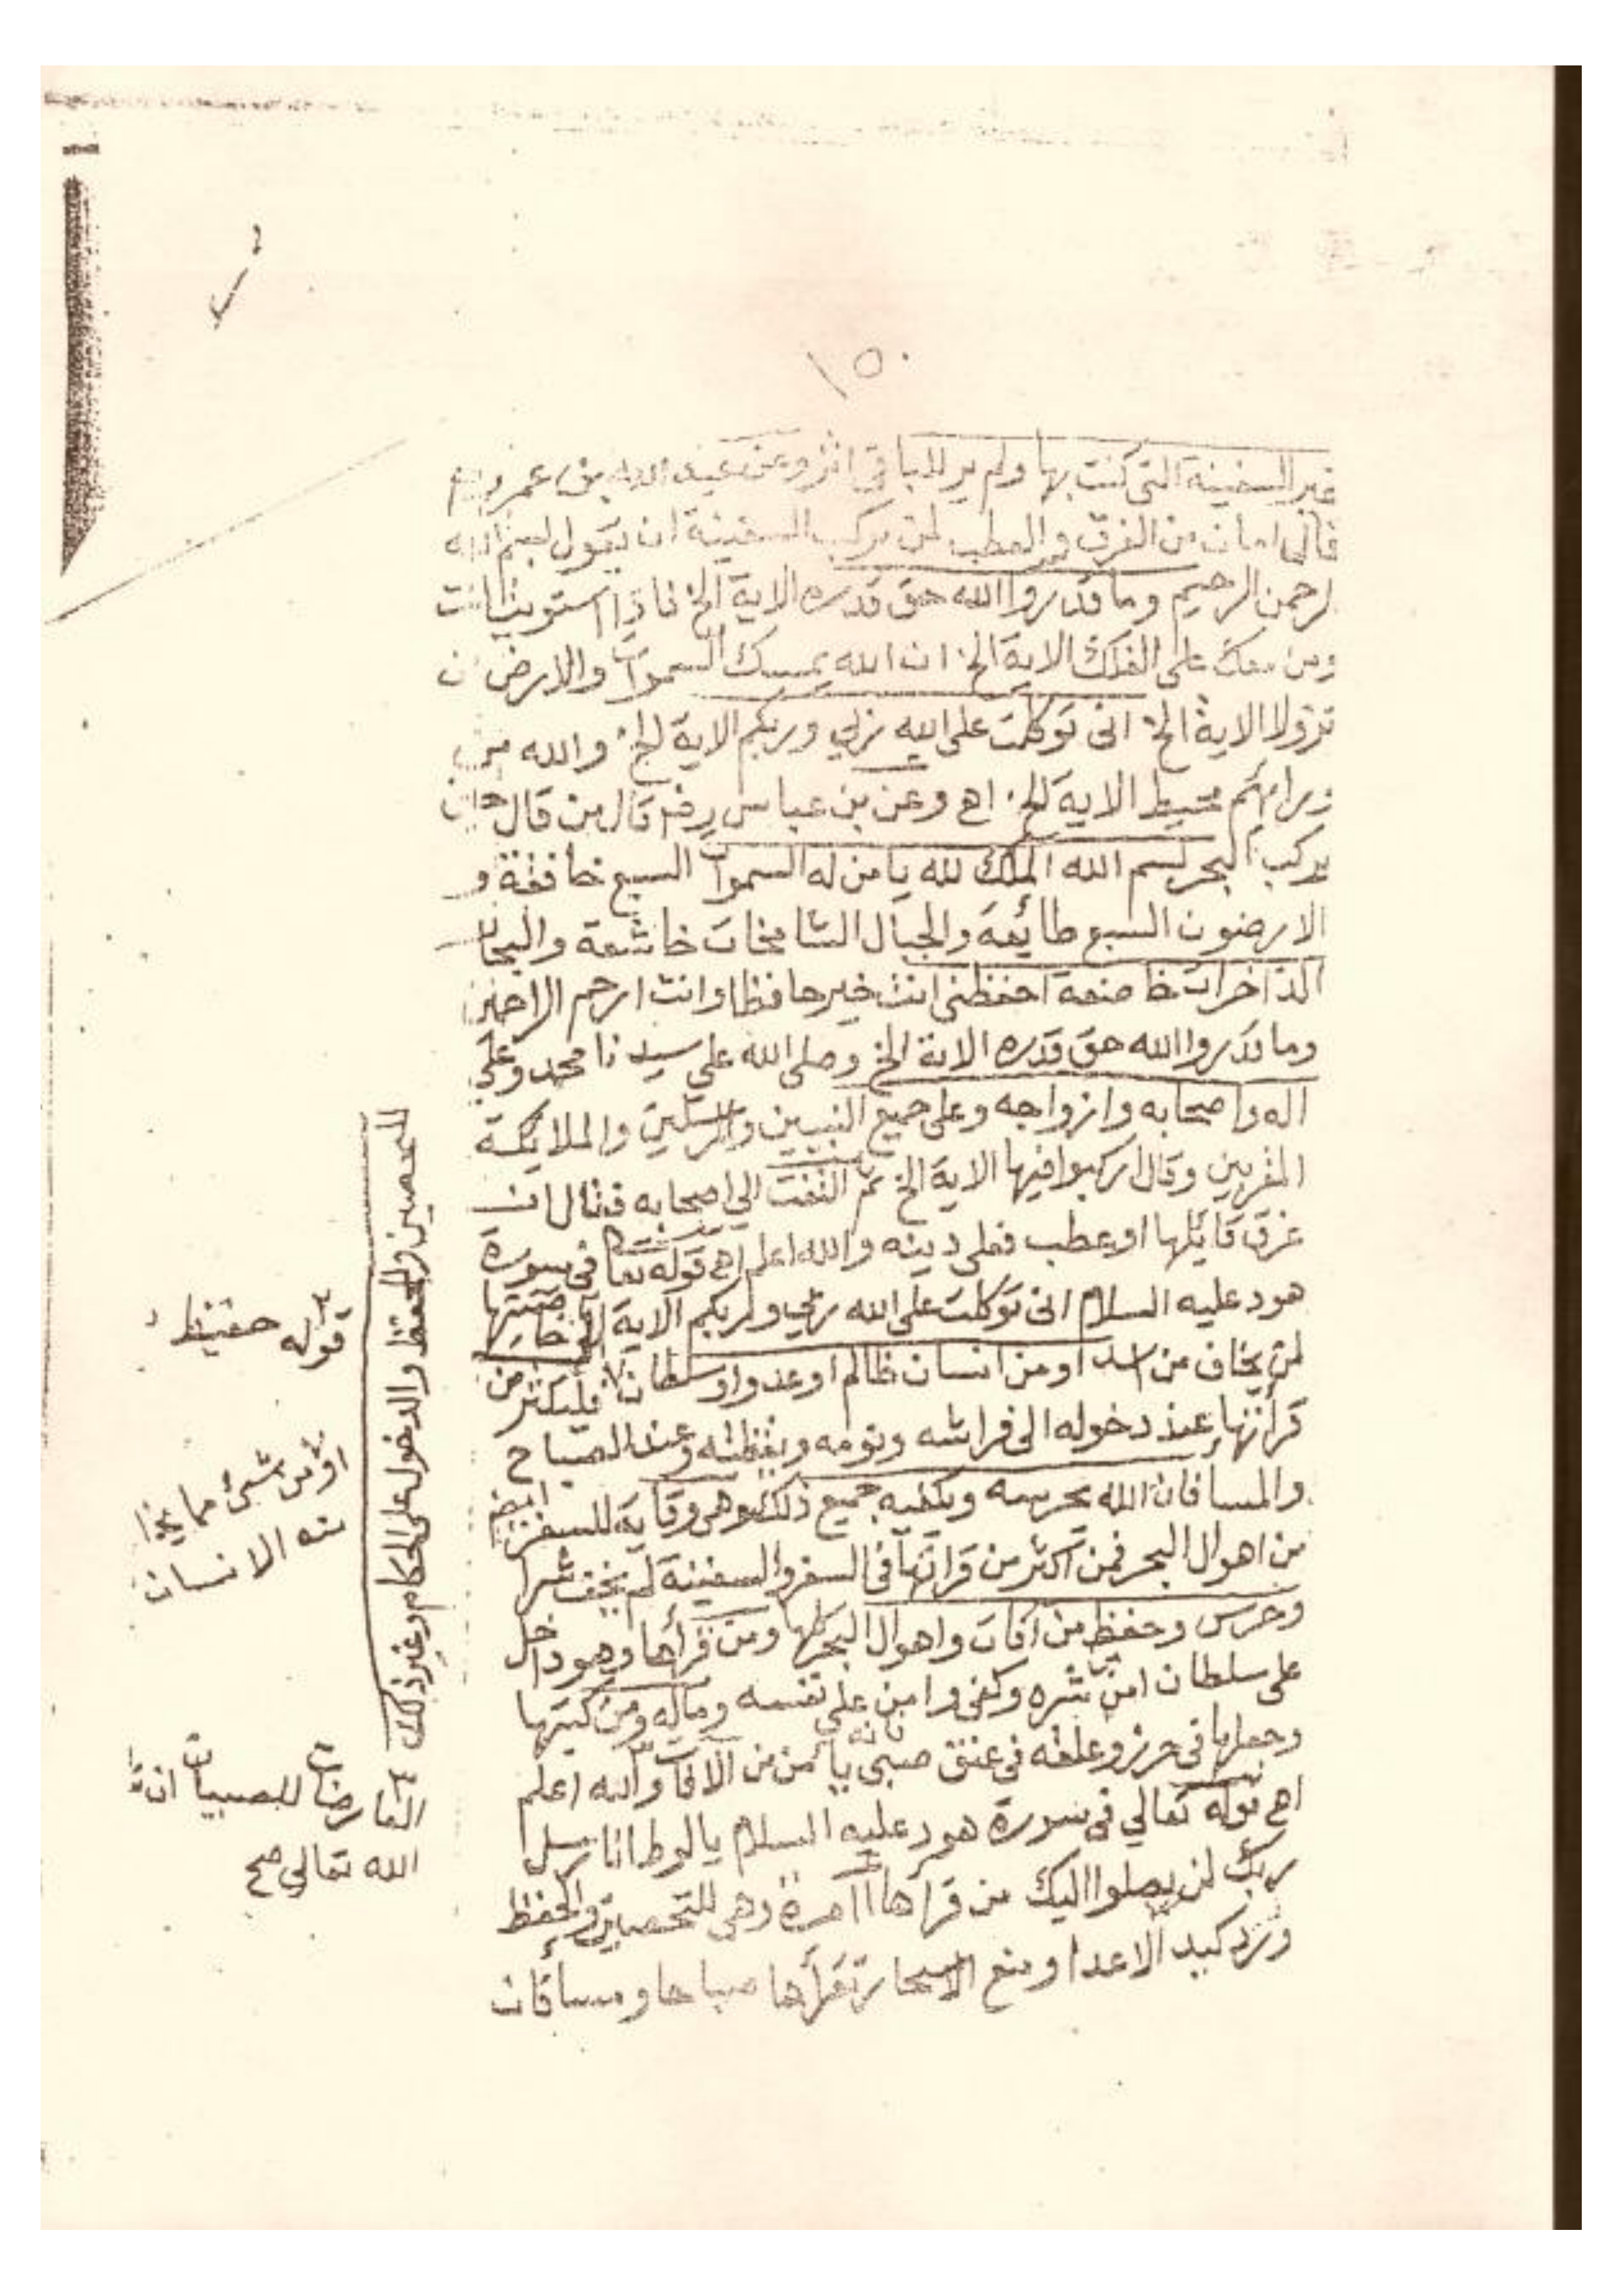 ١٥٠
غير السفينة التى كنت بها ولم ير للباقى اثر وعن عبد الله بن عمر رضى
قال امان من الغرق والعطب لمن يركب السفينة ان يقول بسم الله
لرحمن الرحيم وما قدروا الله حق قدره الاية الخ فاذا استويت انت
ومن معك على الفلك الاية الخ ان الله يمسك السموات والارض ان
تزولا الاية الخ انى توكلت على الله ربي وربكم الاية الخ والله من
ورايهم محيط الاية الخ اهـ وعن بن عباس رضه قال من قال حين
يركب البحر بسم الله الملك لله يا من له السموات السبع خافقة و
الارضون السبع طائعة والجبال الشامخات خاشعة والبحار
الذاخرات خاضعة احفظنى انت خير حافظا وانت ارحم الراحمين
وما قدروا الله حق قدره الاية الخ وصلى الله على سيدنا محمد وعلى
اله واصحابه وازواجه وعلى جميع النبيين والمرسلين والملايكة
المقربين وقال اركبوا فيها الاية الخ ثم التفت الي اصحابه فقال ان
غرق قايلها او عطب فعلى دينه والله اعلم اهـ قوله تعا فى سورة
هود عليه السلام انى توكلت على الله ربي وربكم الاية الخ خاصيتها
لمن يخاف من اسد او من انسان ظالم او عدو او سلطان فليكثر من
قرأتها عند دخوله الى فراشه ونومه ويقظته وعند الصباح
والمسا فان الله يحرسه ويكفيه جميع ذلك وهى وقاية للسفر ايضا
من اهوال البحر فمن اكثر من قراتها فى السفر والسفينة لم يخف شرا
وحرس وحفظ من آفات واهوال البحر كلها ومن قرأها وهو داخل
على سلطان امن شره وكفى وامن على نفسه وماله ومن كتبها
وجعلها فى حرز وعلقه فى عنق صبى فانه يأمن من الآفات والله اعلم
اهـ قوله تعالي فى سورة هود عليه السلام يا لوط انا رسل
ربك لن يصلوا اليك من قرأها مرة وهى للتحصين والحفظ
ورد كيد الاعدا ومنع الاسحار تقرأها صباحا ومسا فان
للتحصين والحفظ والدخول على الحكام وغير ذلك
قوله حفيظ
اؤمن شئ مما يخا
منه الانسان
العارضات للصبيان ان
الله تعالى صح